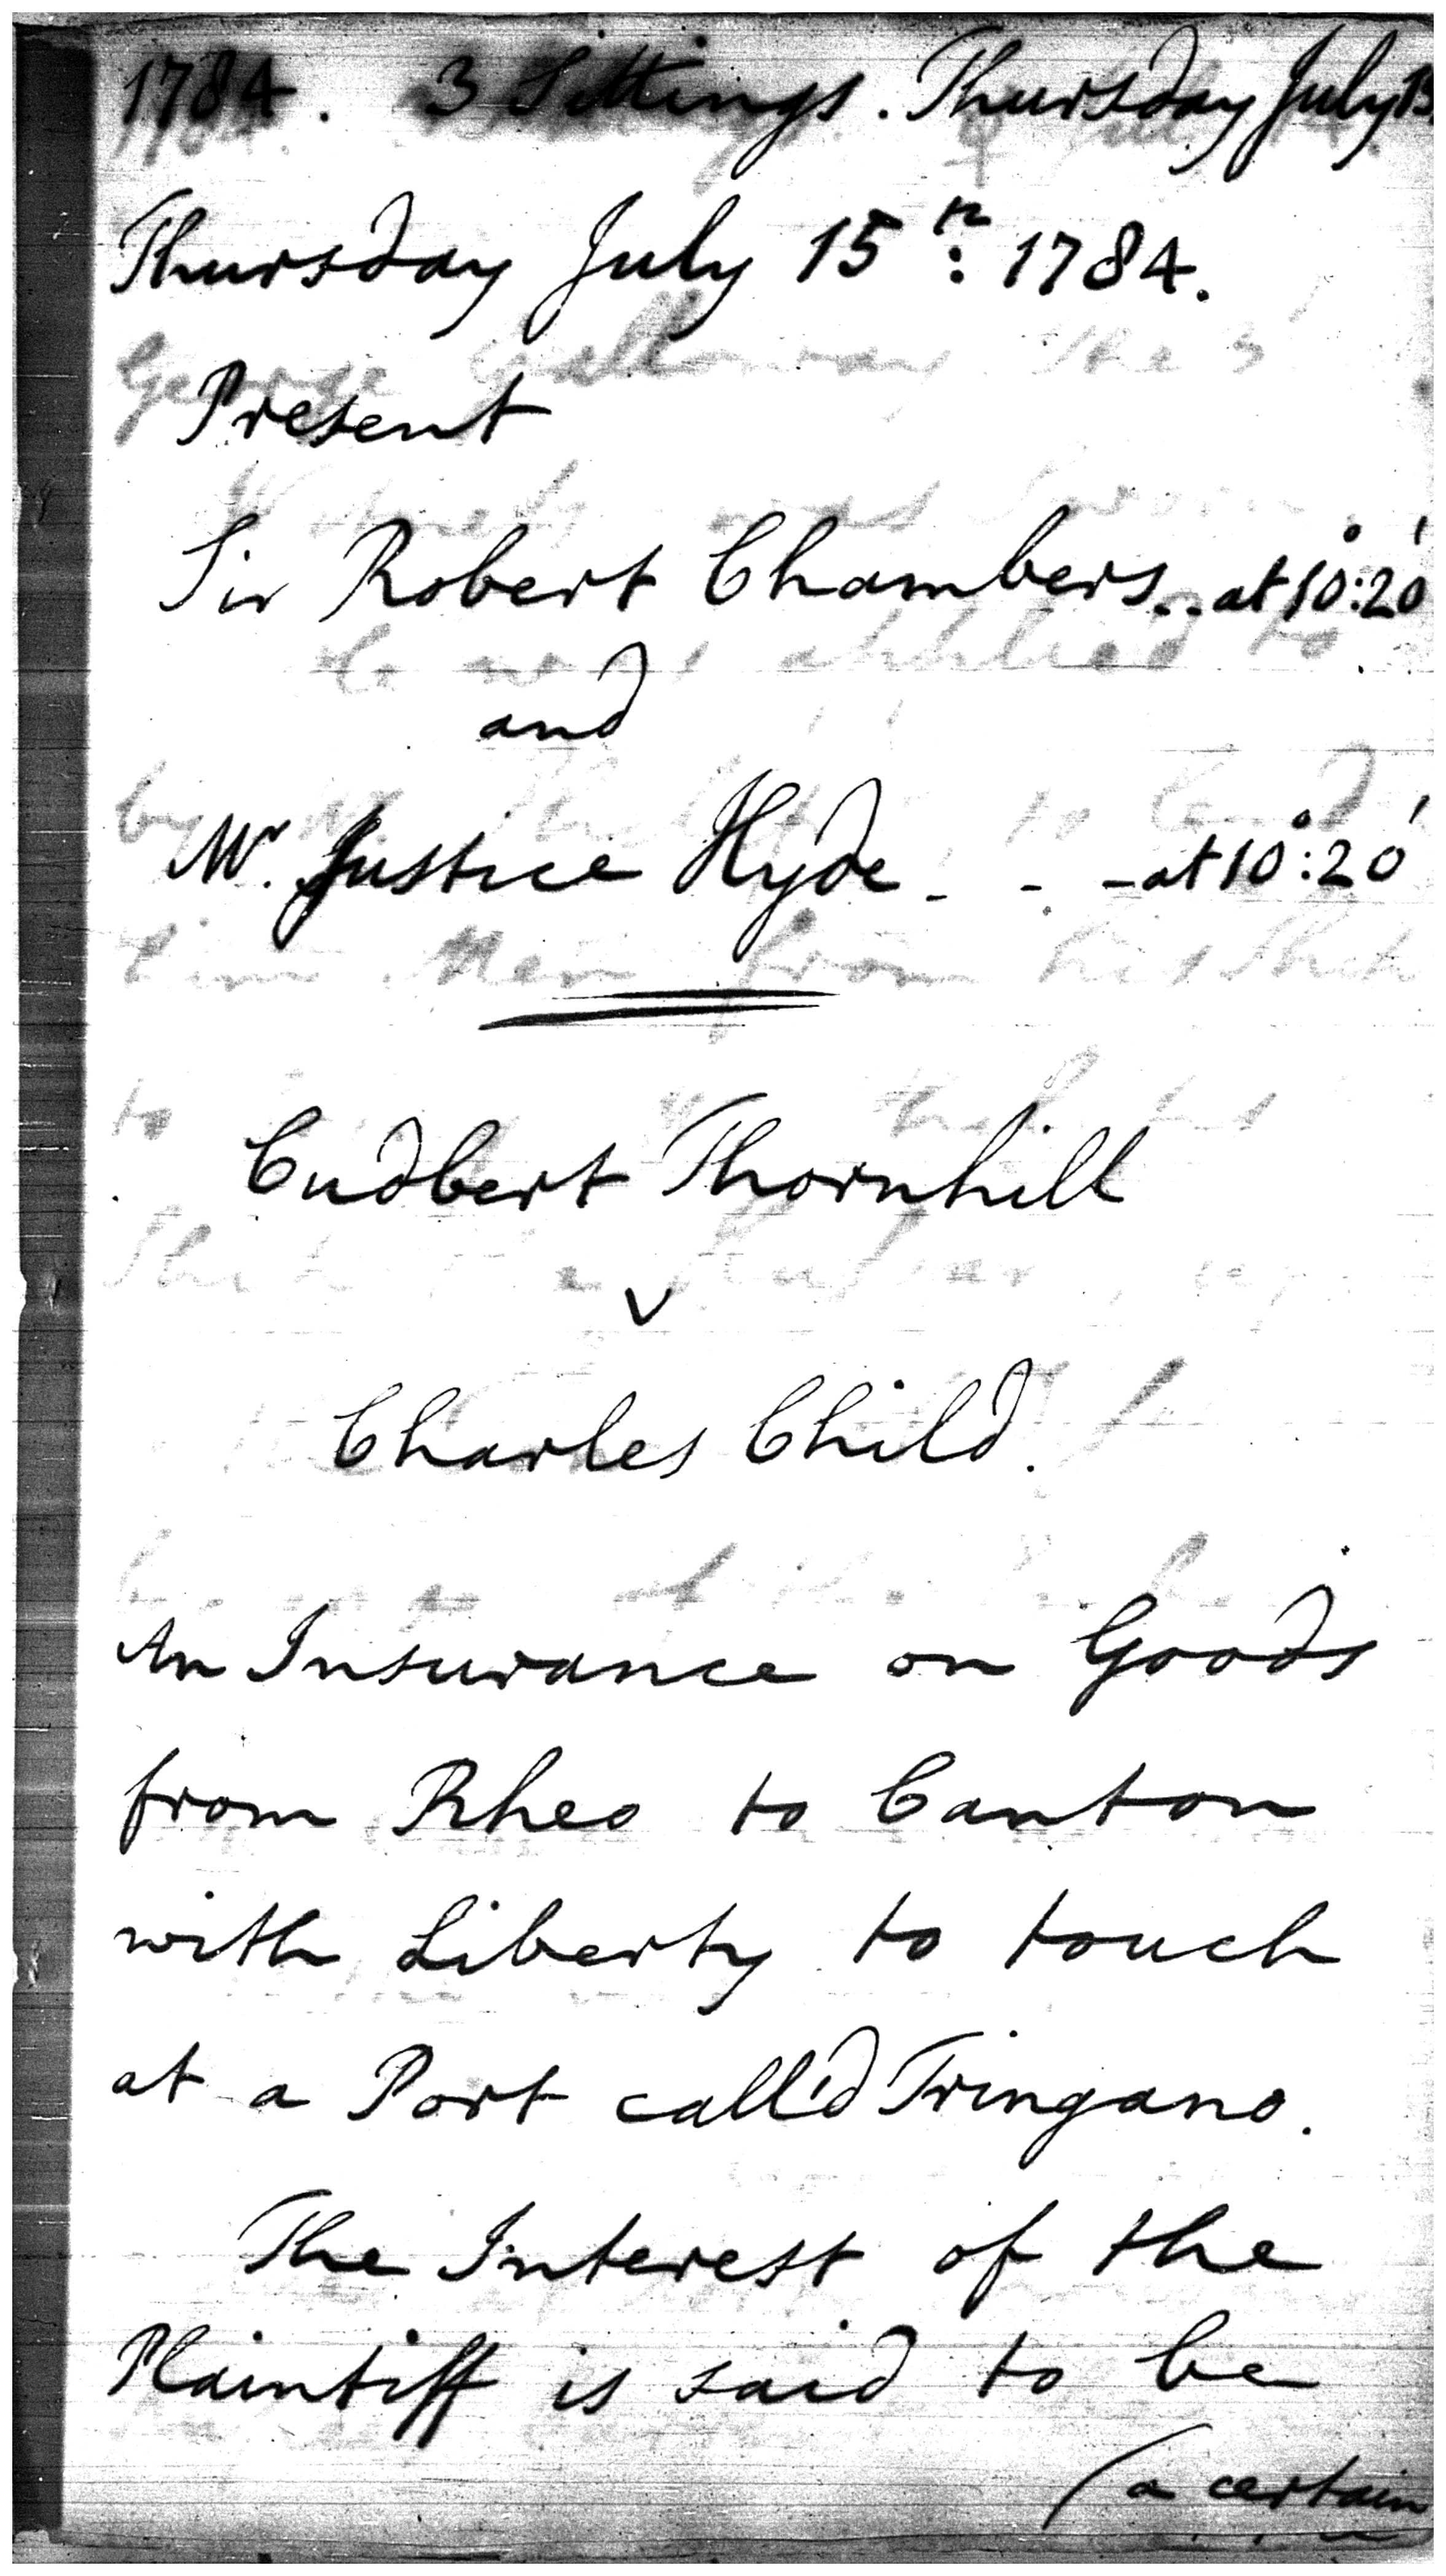 1784. 3 Sittings. Thursday July 15
Thursday July 15th: 1784.
Present
Sir Robert Chambers.. at 10°:20'
and
Mr. Justice Hyde - - - at 10°:20'
Cudbert Thornhill
v
Charles Child.
An Insurance on Goods
from Rheo to Canton
with Liberty to touch
at a Port call'd Tringano.
The Interest of the
Plaintiff is said to be
(a certain